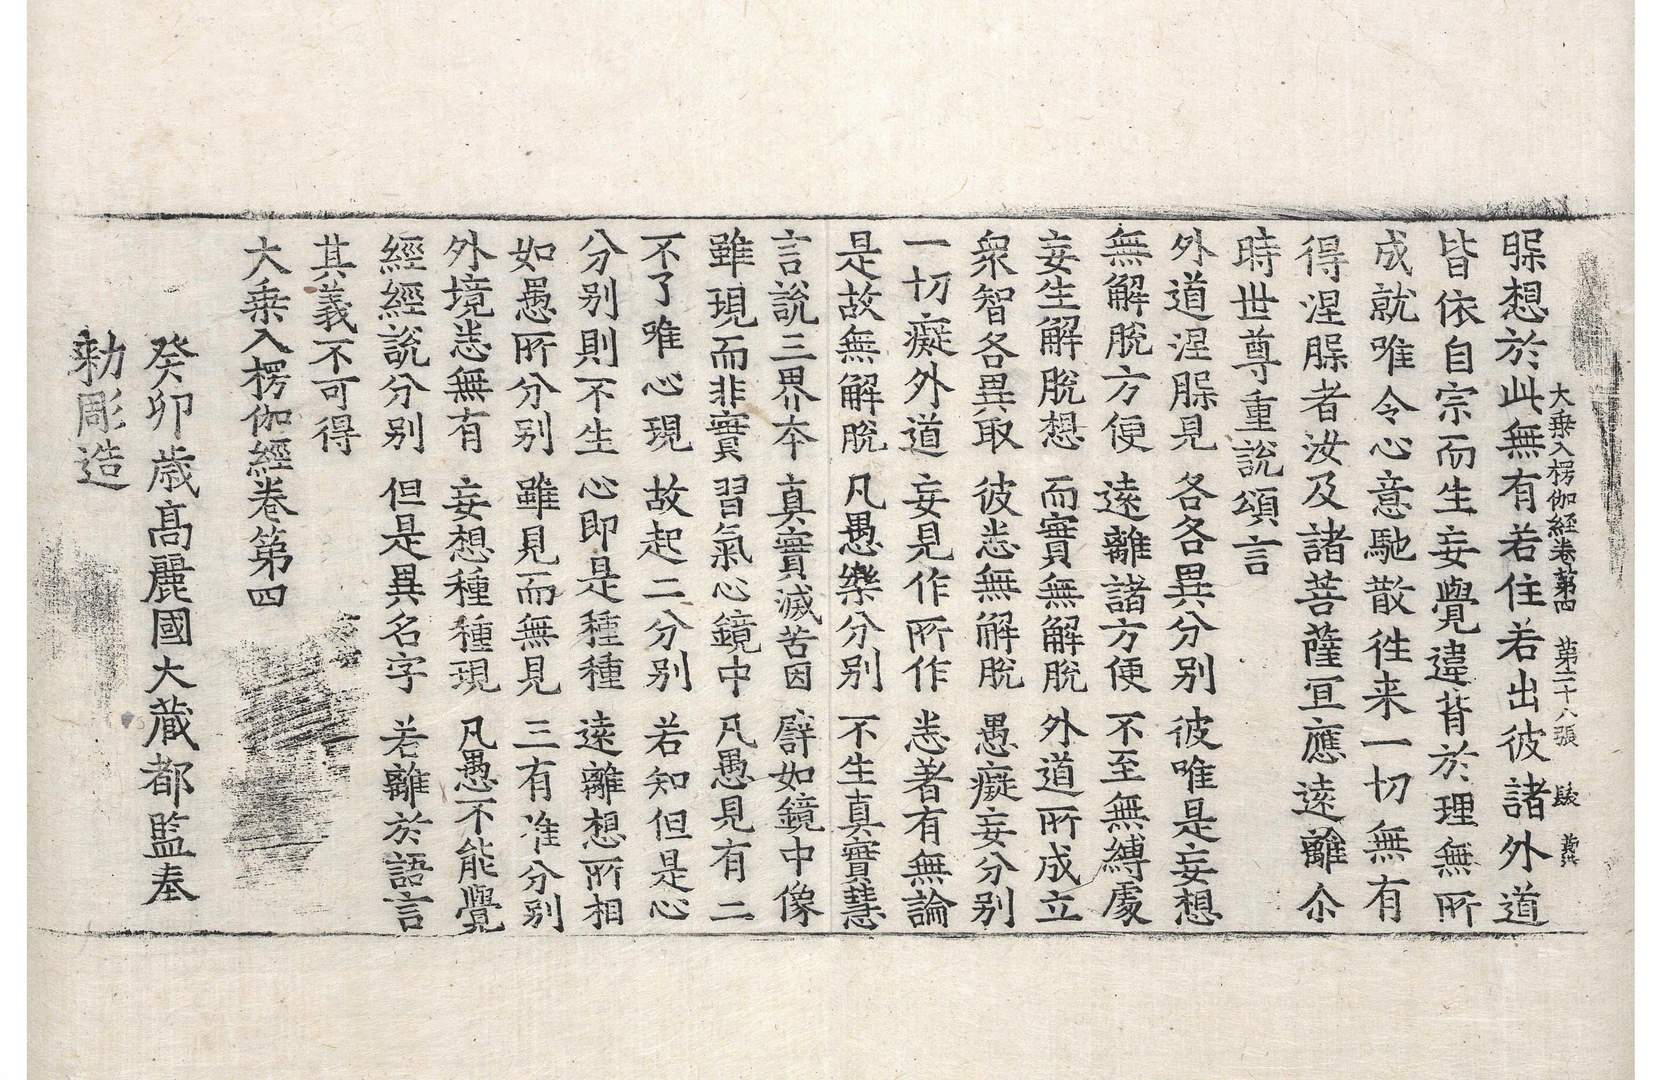 大乗入楞伽經卷第四 第二十八張
𣊟想於此無有若住若出彼諸外道
皆依自宗而生妄覺違背於理無所
成就唯令心意馳散徃来一切無有
得涅槃者汝及諸菩薩宜應遠離尒
時世尊重說頌言
外道涅槃見 各各異分别 彼唯是妄想
無解脫方便 遠離諸方便 不至無縛處
妄生解脫想 而實無解脫 外道所成立
衆智各異取 彼悉無解脫 愚癡妄分别
一切癡外道 妄見作所作 悉著有無論
是故無解脫 凡愚樂分别 不生真實慧
言說三界本 真實滅苦因 譬如鏡中像
雖現而非實 習氣心鏡中 凡愚見有二
不了唯心現 故起二分别 若知但是心
分别則不生 心即是種種 遠離想所相
如愚所分别 雖見而無見 三有唯分别
外境悉無有 妄想種種現 凡愚不能覺
經經說分别 但是異名字 若離於語言
其義不可得
大乗入楞伽經卷第四
癸卯歳高麗國大蔵都監奉
勑彫造